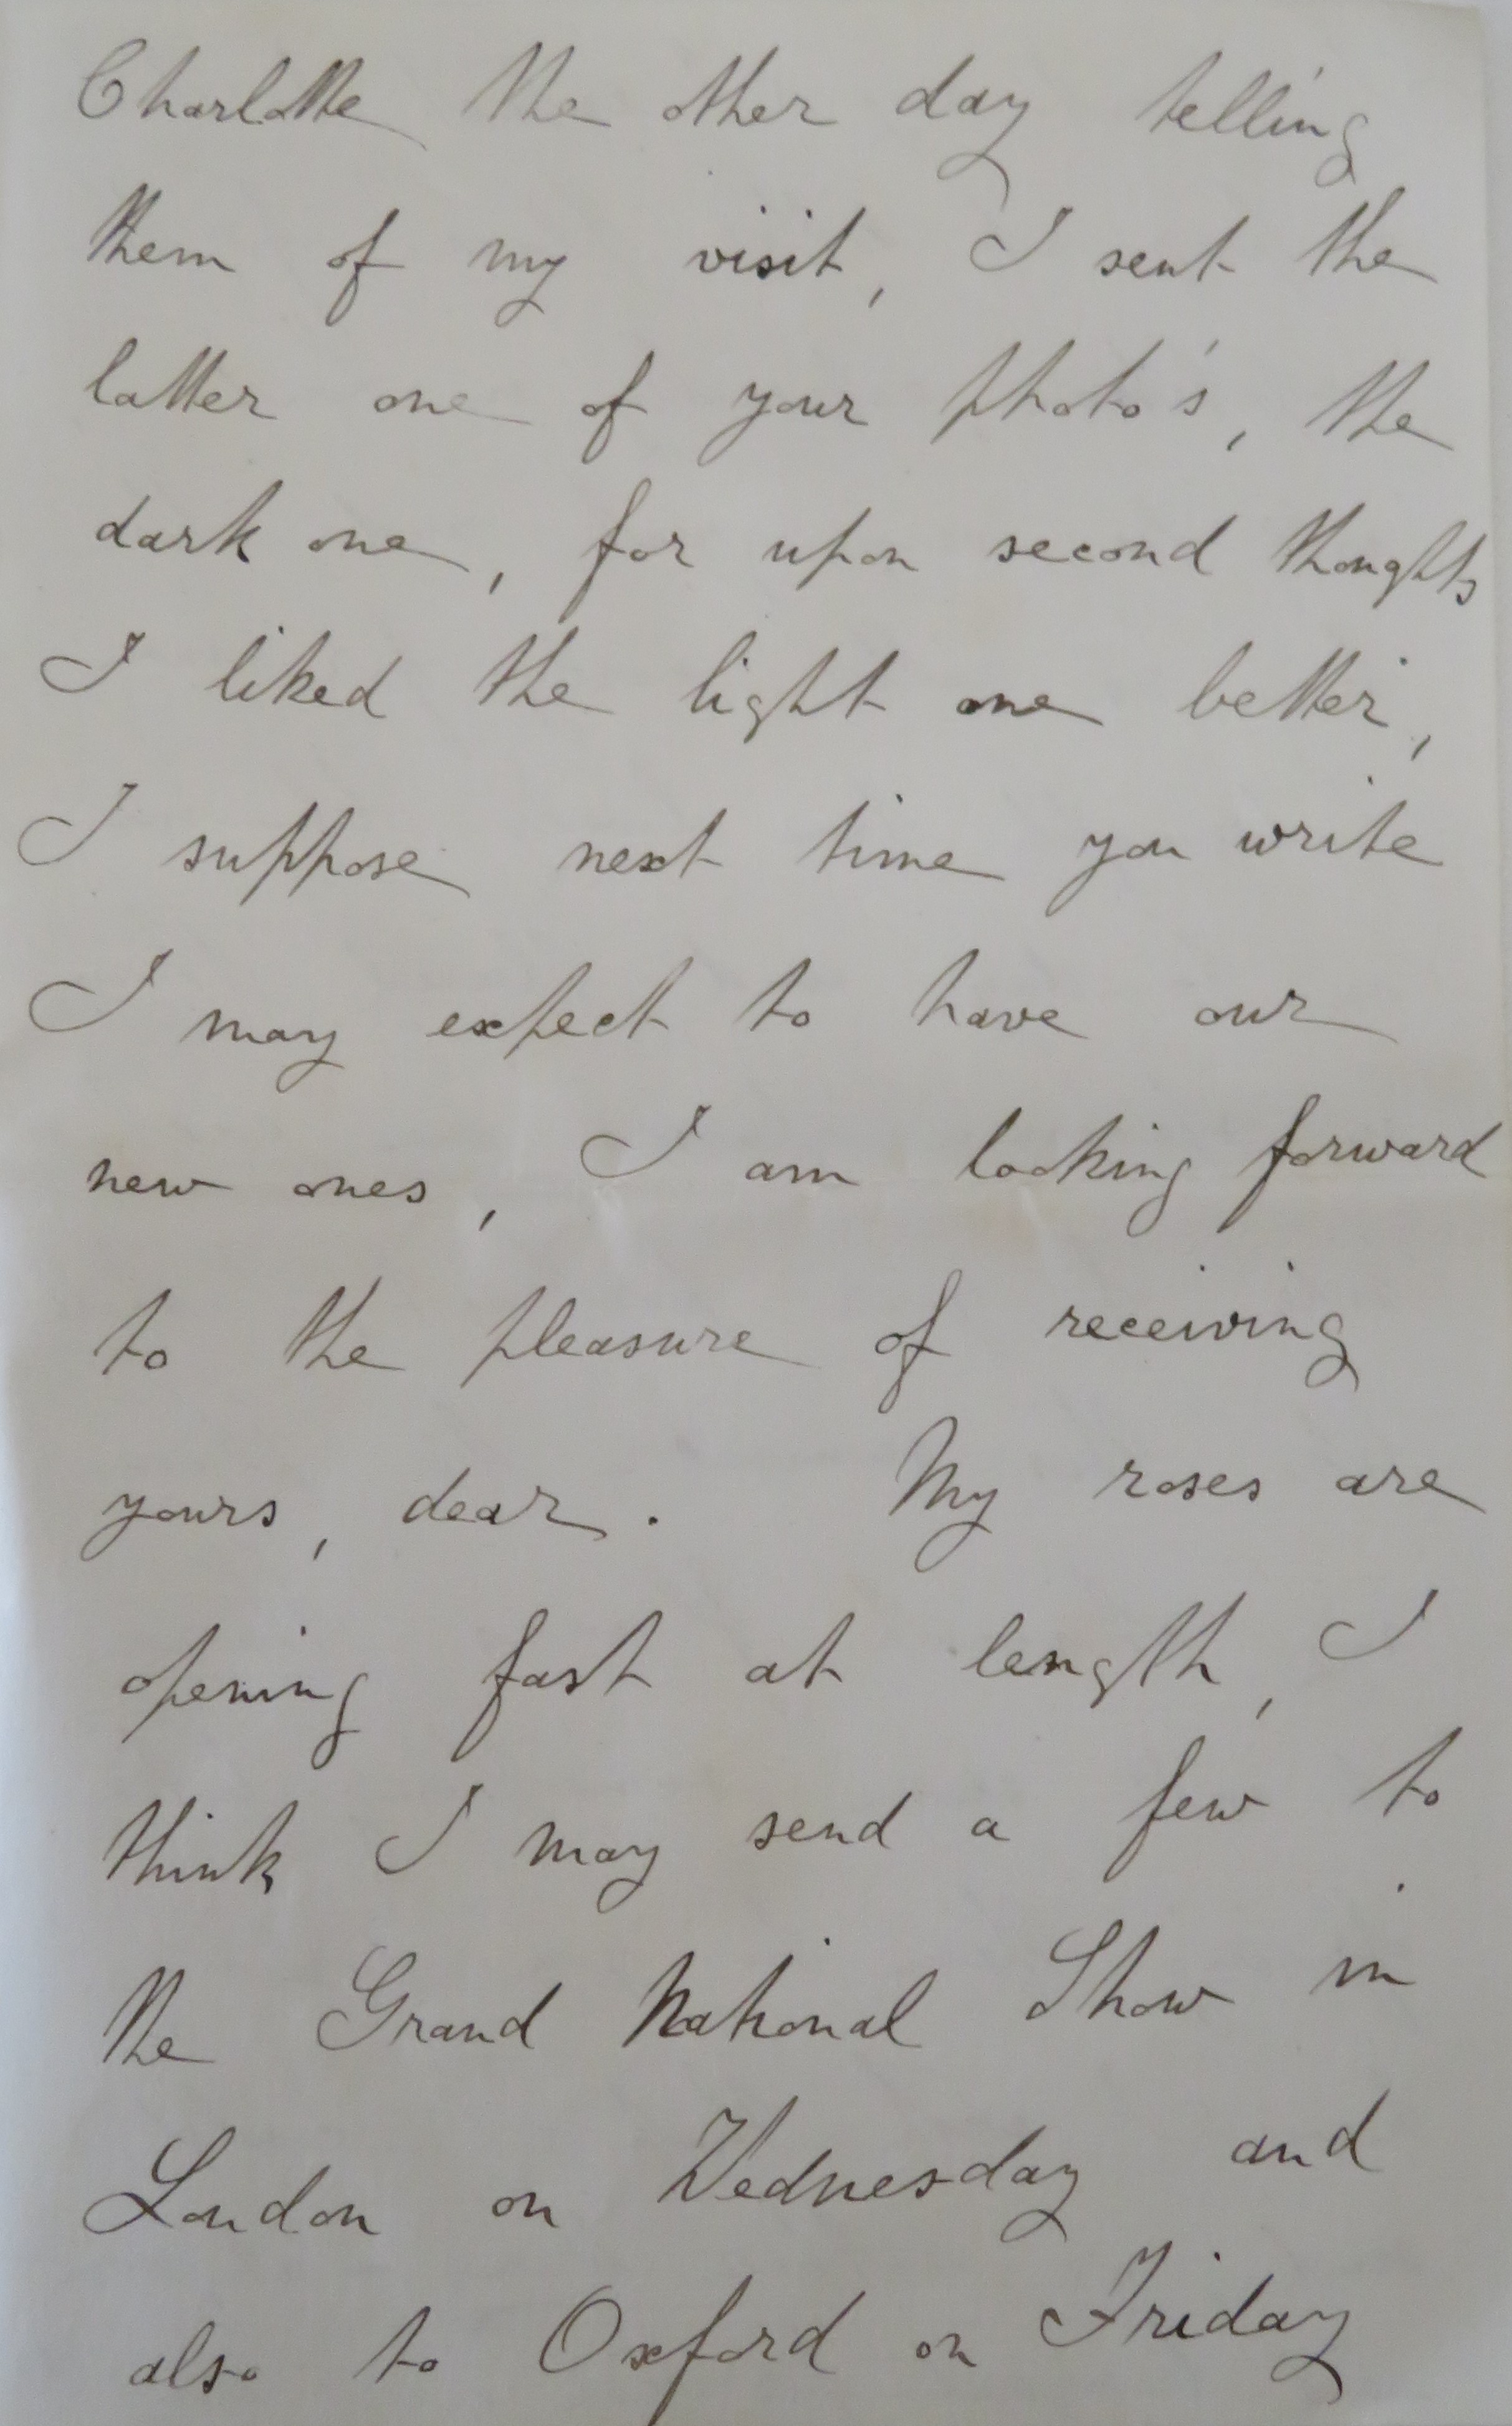 Charlotte the other day telling
them of my visit, I sent the
latter one of your photo's, the
dark one, for upon second thoughts
I liked the light one better,
I suppose next time you write
I may expect to have our
new ones, I am looking forward
to the pleasure of receiving
yours, dear. My roses are
opening fast at length, I
think I may send a few to
the Grand National Show in
London on Wednesday and
also to Oxford on Friday